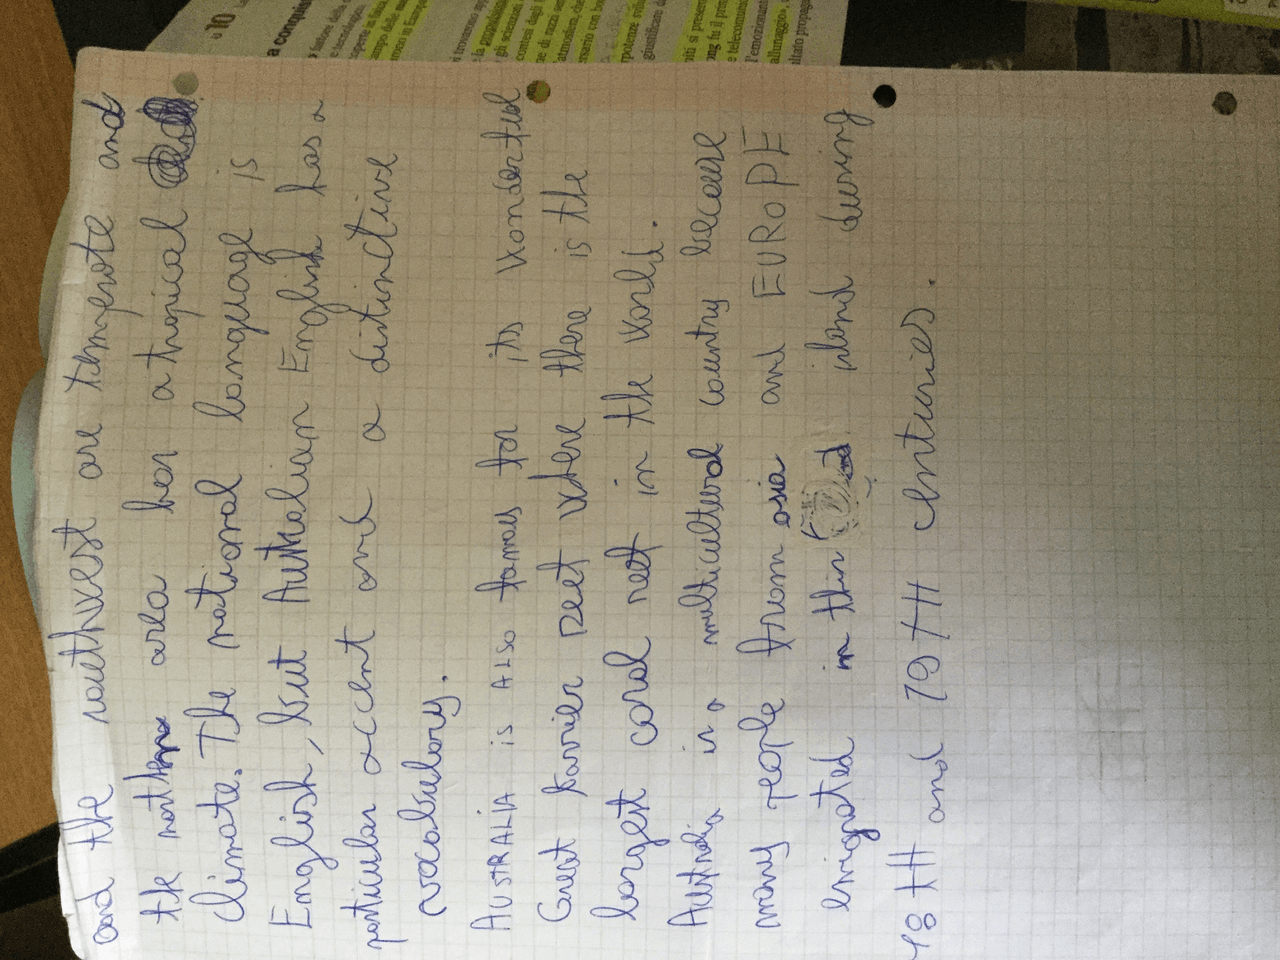 and the southwest are temperate and
the northern area has a tropical
climate. The national language is
English, but Australian English has a
particular accent and a distinctive
vocabulary.
AUSTRALIA is ALSO famous for its wonderful
Great barrier reef where there is the
largest coral reef in the world.
Australia is a multicultural country because
many people from asia and EUROPE
emigrated in this island during
18 tH and 19 tH centuries.